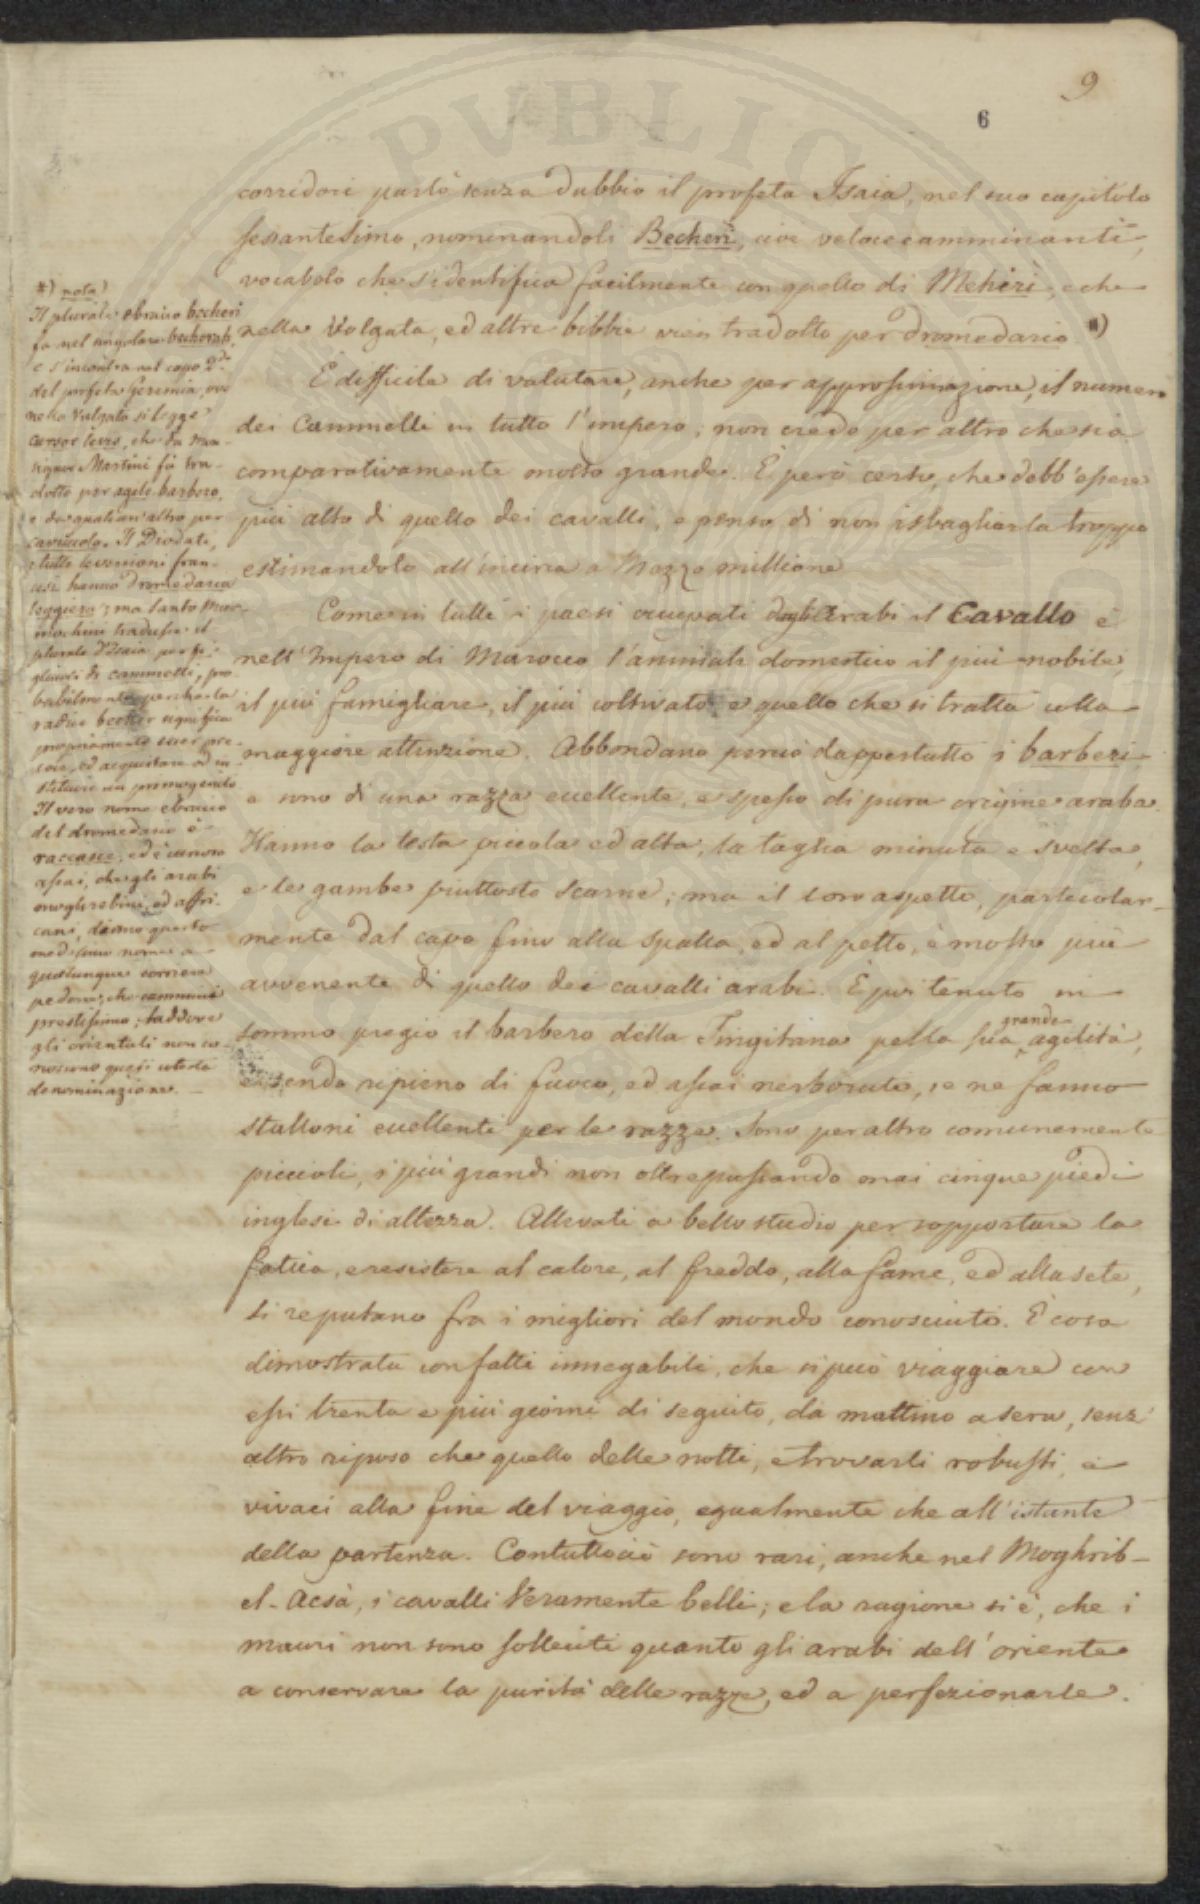 9
6
corridori parlò senza dubbio il profeta Isaia, nel suo capitolo
sessantesimo, nominandoli Becheri, cioè velocecamminanti,
vocabolo che s'identifica facilmente con quello di Meheri, e che
nella Volgata, ed altre bibbie vien tradotto per dromedario *)
È difficile di valutare, anche per approssimazione, il numero
dei Cammelli in tutto l'impero; non credo per altro che sia
comparativamente molto grande. È però certo, che debb'essere
più alto di quello dei cavalli, e penso di non isbagliarla troppo
estimandolo all'incirca a Mezzo millione
Come in tutti i paesi occupati dagli Arabi il Cavallo è
nell'Impero di Marocco l'animale domestico il più nobile,
il più famigliare, il più coltivato e quello che si tratta colla
maggiore attenzione. Abbondano perciò dappertutto i barberi
e sono di una razza eccellente, e spesso di pura origine araba.
Hanno la testa piccola ed alta, la taglia minuta e svelta,
e le gambe piuttosto scarne; ma il loro aspetto, particolar-
mente dal capo fino alla spalla, ed al petto, è molto più
avvenente di quello dei cavalli arabi. È pur tenuto in
sommo pregio il barbero della Tingitana pella sua grande agilità,
essendo ripieno di fuoco, ed assai nerboruto, se ne fanno
stalloni eccellenti per le razze. Sono per altro comunemente
piccioli, i più grandi non oltrepassando mai cinque piedi
inglesi di altezza. Allevati a bello studio per sopportare la
fatica, e resistere al calore, al freddo, alla fame, ed alla sete,
si reputano fra i migliori del mondo conosciuto. È cosa
dimostrata con fatti innegabili, che si può viaggiare con
essi trenta e più giorni di seguito, da mattino a sera, senz'
altro riposo che quello delle notti, e trovarli robusti, e
vivaci alla fine del viaggio, egualmente che all'istante
della partenza. Contuttociò sono rari, anche nel Moghrib-
el-Acsà, i cavalli Veramente belli; e la ragione si è, che i
mauri non sono solleciti quanto gli arabi dell'oriente
a conservare la purità delle razze, ed a perfezionarle.
*) nota)
Il plurale ebraico becheri
fa nel singolare becherah,
e s'incontra nel capo 2.do
del profeta Geremia, ove
nella Valgata si legge
cursor levis, che da mon-
signor Martini fù tra-
dotto per agile barbero,
e da qualcun'altro per
cavriuolo. Il Diodati,
e tutte le versioni fran-
cesi hanno dromedaria
leggiera; ma Santo
traduce il
plurale d'Isaia per fi-
gliuoli di cammelli, pro-
babilmente perchè la
radice becher significa
propriamente esser pre-
coce, ed acquistare od in-
stituire un primogenito
Il vero nome ebraico
del dromedario è
raccasce, ed è curioso
assai, che gli arabi
moghrebini, ed affri-
cani, danno questo
medesimo nome a
qualunque corriere
pedone, che cammina
prestissimo; laddove
gli orientali non co-
noscono quasi cotesta
denominazione. —